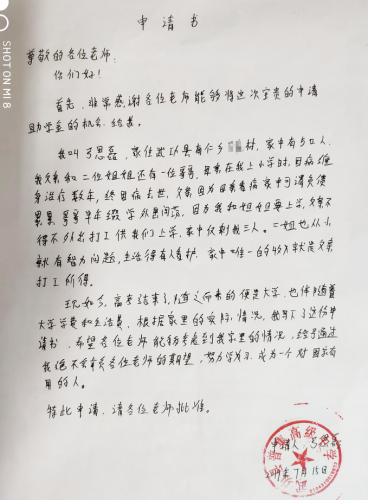 申请书
尊敬的各位老师:
你们好!
首先,非常感谢各位老师能够将这次宝贵的申请
助学金的机会给我。
我叫 思磊,家住武功县 村,家中有 口人,
我父亲和二位姐姐还有一位哥哥,母亲在我上小学时,因病缠
身治疗数年,终因病去世,父亲因为因母亲看病家中可谓负债
累累 哥哥早年辍学 ,因为我和姐姐要上学,父亲不
得不外出打工供我们上学,家中仅剩我三人。二姐也从小
就有智力问题,生活得有人看护,家中唯一的收入就是父亲
打工所得。
现如今,高考结束了,随之而来的便是大学,也伴随着
大学学费和生活费,根据家里的实际情况,我写下了这份申
请书,希望各位老师能够考虑到我家里的情况,给予通过
我绝不会辜负各位老师的期望,努力学习,成为一个对国家有
用的人。
特此申请,请各位老师批准。
申请人 思磊
7月15日
高级中学
SHOT ON MI 8